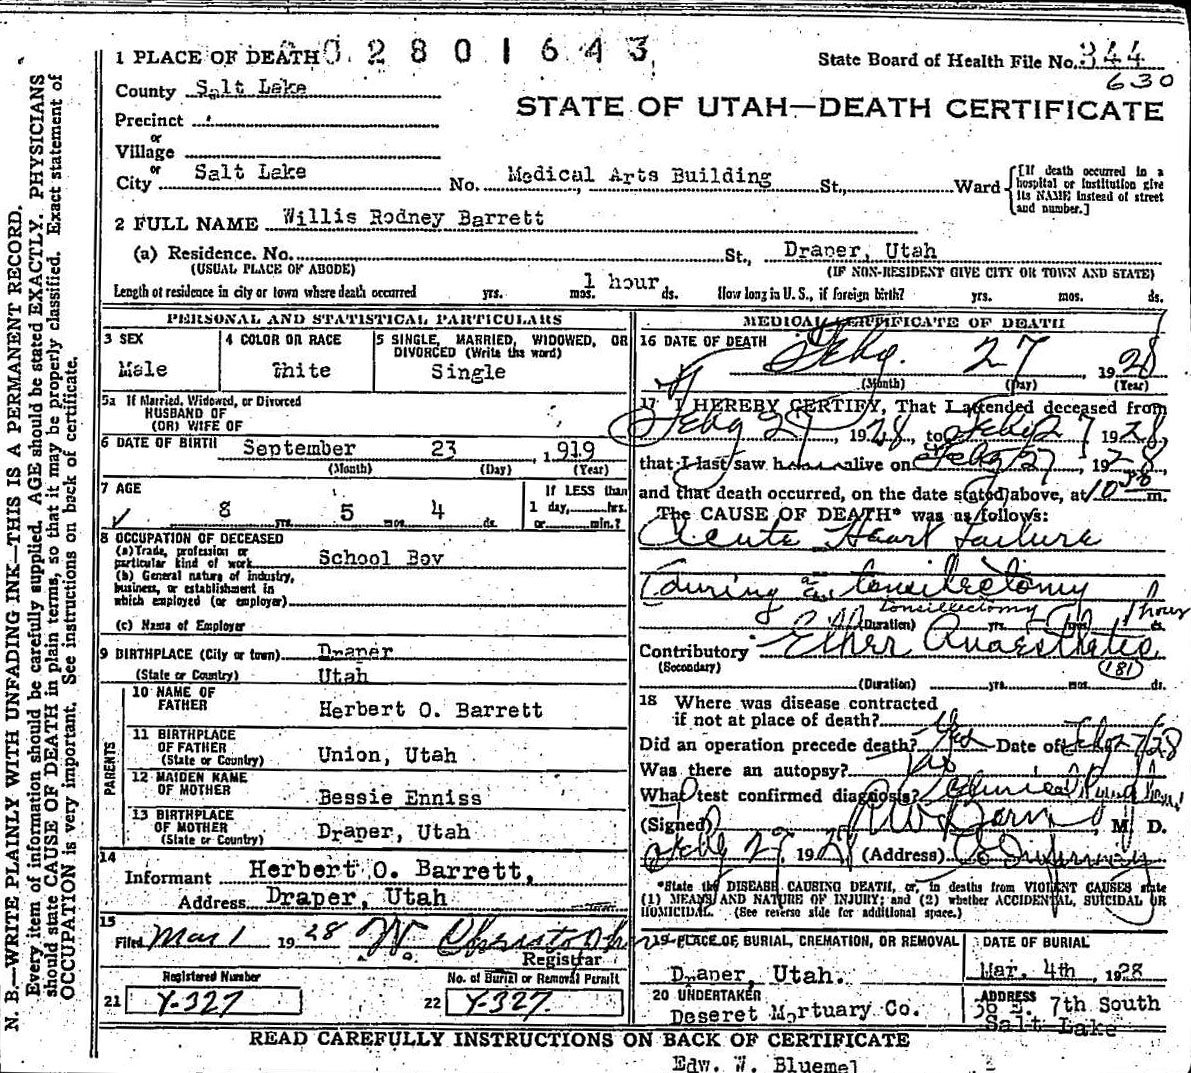 1 PLACE OF DEATH 02801643 State Board of Health File No. 344
630
County Salt Lake
STATE OF UTAH—DEATH CERTIFICATE
Precinct
or
Village
or
City Salt Lake No. Medical Arts Building St., Ward [If death occurred in a hospital or institution give its NAME instead of street and number.]
2 FULL NAME Willis Rodney Barrett
(a) Residence. No. St., Draper, Utah
(USUAL PLACE OF ABODE) (IF NON-RESIDENT GIVE CITY OR TOWN AND STATE)
Length of residence in city or town where death occurred yrs. mos. 1 hour ds. How long in U. S., if foreign birth? yrs. mos. ds.
PERSONAL AND STATISTICAL PARTICULARS
3 SEX 4 COLOR OR RACE 5 SINGLE, MARRIED, WIDOWED, OR
DIVORCED (Write the word)
Male White Single
5a If Married, Widowed, or Divorced
HUSBAND OF
(OR) WIFE OF
6 DATE OF BIRTH September 23, 1919
(Month) (Day) (Year)
7 AGE If LESS than
8 yrs. 5 mos. 4 ds. 1 day, hrs.
or min.?
8 OCCUPATION OF DECEASED
(a) Trade, profession or
particular kind of work School Boy
(b) General nature of industry,
business, or establishment in
which employed (or employer)
(c) Name of Employer
9 BIRTHPLACE (City or town) Draper
(State or Country) Utah
PARENTS
10 NAME OF
FATHER Herbert O. Barrett
11 BIRTHPLACE
OF FATHER
(State or Country) Union, Utah
12 MAIDEN NAME
OF MOTHER Bessie Enniss
13 BIRTHPLACE
OF MOTHER
(State or Country) Draper, Utah
14
Informant Herbert O. Barrett,
Address Draper, Utah
15
Filed Mar 1 1928
Registrar
Registered Number No. of Burial or Removal Permit
21 Y-327 22 Y-327
MEDICAL CERTIFICATE OF DEATH
16 DATE OF DEATH Feby. 27 1928
(Month) (Day) (Year)
17 I HEREBY CERTIFY, That I attended deceased from
Feby 27, 1928, to Feby 27 1928,
that I last saw h alive on Feby 27, 1928
and that death occurred, on the date stated above, at 10 m.
The CAUSE OF DEATH* was as follows:
Acute Heart Failure
(during a tonsilectomy
tonsillectomy 1 hour
(Duration) yrs. mos. ds.
Contributory Ether Anaesthetic
(Secondary) (181)
(Duration) yrs. mos. ds.
18 Where was disease contracted
if not at place of death?
Did an operation precede death? Yes Date of Feby 27/28
Was there an autopsy?
What test confirmed diagnosis? Clinical
(Signed) M. D.
Feby 27, 1928 (Address)
*State the DISEASE CAUSING DEATH, or, in deaths from VIOLENT CAUSES state
(1) MEANS AND NATURE OF INJURY; and (2) whether ACCIDENTAL, SUICIDAL OR
HOMICIDAL. (See reverse side for additional space.)
19 PLACE OF BURIAL, CREMATION, OR REMOVAL DATE OF BURIAL
Draper, Utah. Mar. 4th, 1928
20 UNDERTAKER ADDRESS
Deseret Mortuary Co. 36 E. 7th South
Salt Lake
READ CAREFULLY INSTRUCTIONS ON BACK OF CERTIFICATE
Edw. W. Bluemel
N. B.—WRITE PLAINLY WITH UNFADING INK—THIS IS A PERMANENT RECORD.
Every item of information should be carefully supplied. AGE should be stated EXACTLY. PHYSICIANS
should state CAUSE OF DEATH in plain terms, so that it may be properly classified. Exact statement of
OCCUPATION is very important. See instructions on back of certificate.